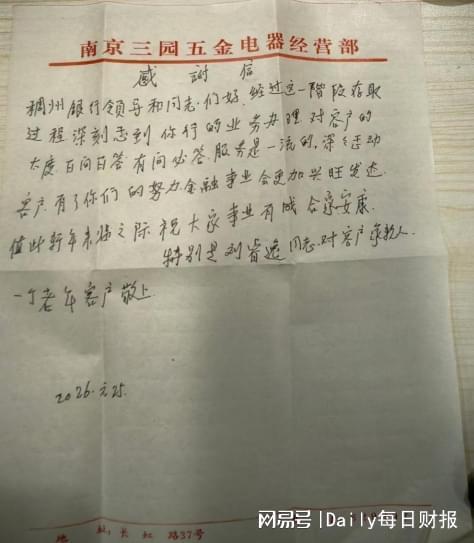 南京三园五金电器经营部
感謝信
稠州银行领导和同志们好.经过这一階段存取
过程深刻感到你行的业务办理对客户的
太度百问百答有问必答.服务是一流的,深深感动
客户.有了你们的努力金融事业会更加兴旺发达.
值此新年来临之际祝大家事业有成合家安康.
特别是刘睿逸同志.对客户亲如人.
一个老年客户敬上.
2026.元.25.
地 址:长虹路37号
网易号|Daily每日财报